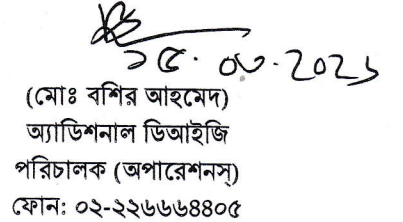 (মোঃ বশির আহমেদ)
অ্যাডিশনাল ডিআইজি
পরিচালক (অপারেশনস্)
ফোন: ০২-২২৬৬৬৪৪০৫